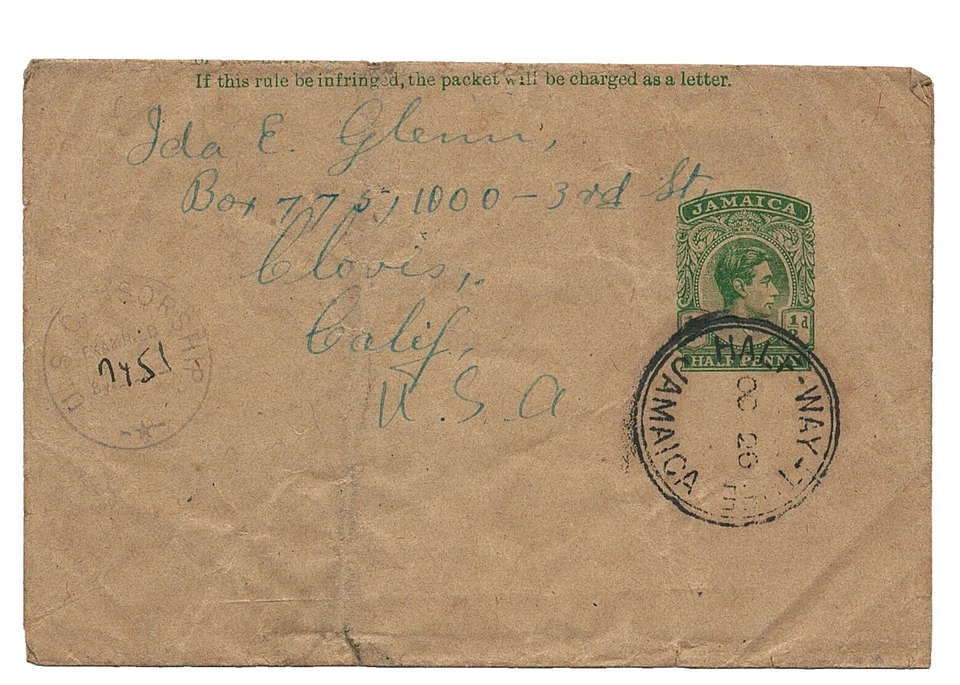 If this rule be infringed, the packet will be charged as a letter.
Ida E. Glenn,
Box 775, 1000 - 3rd St,
Clovis,
Calif,
U.S.A
JAMAICA
½d
HALF PENNY
HALF-WAY-TREE
JAMAICA
OC 26
U.S. CENSORSHIP
EXAMINED
BY
7451